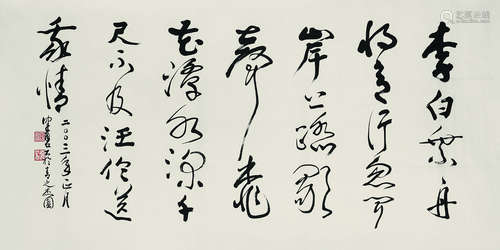 李白乘舟
将欲行忽闻
岸上踏歌
聲桃
花潭水深千
尺不及汪伦送
我情
二〇〇三年正月